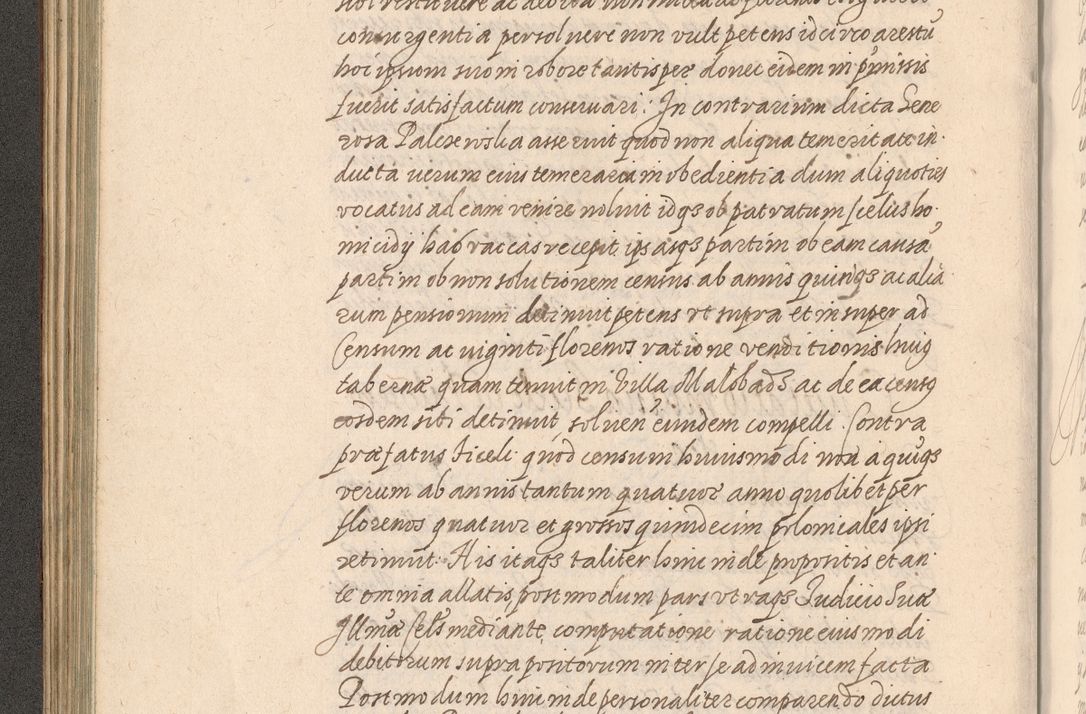 consurgentia persoluere non vult petens idcirco arestũ
hoc ipsum suo in robore tantisper donec eidem in p̃missis
fuerit satisfactum conseruari. In contrarium dicta Gene
rosa Palczewska asseruit quod non aliqua temeritate in
ducta uerum eius temerariam obedientia dum aliquoties
vocatus ad eam venire noluit idq3 ob patratum scelus ho
micidij has vaccas recepit ipsasq3 partim ob eam causã
partim ob non solutionem census ab annis quinq3 ac aliã
rum pensionum detinuit petens vt supra et insuper ad
Censum ac uiginti florenos ratione venditionis huig
tabernæ quam tenuit in Villa Malobads ac de ea censũ
eosdem sibi detinuit, soluen̾ eundem compelli. Contra
præfatus Ficeli quod censum huiusmodi non a quiq3
verum ab annis tantum quatuor anno quolibet per
florenos quatuor et grossos quindecim p̃lonicales ipsi
retinuit. His itaq3 taliter hinc inde propositis et an
te omnia allatis, postmodum pars vtraq3 Iudicio Suæ
Illmæ Cels mediante, computatione ratione eiusmodi
debitorum supra positorum inter se ad inuicem facta
Postmodum hinc inde personaliter comparendo dictus